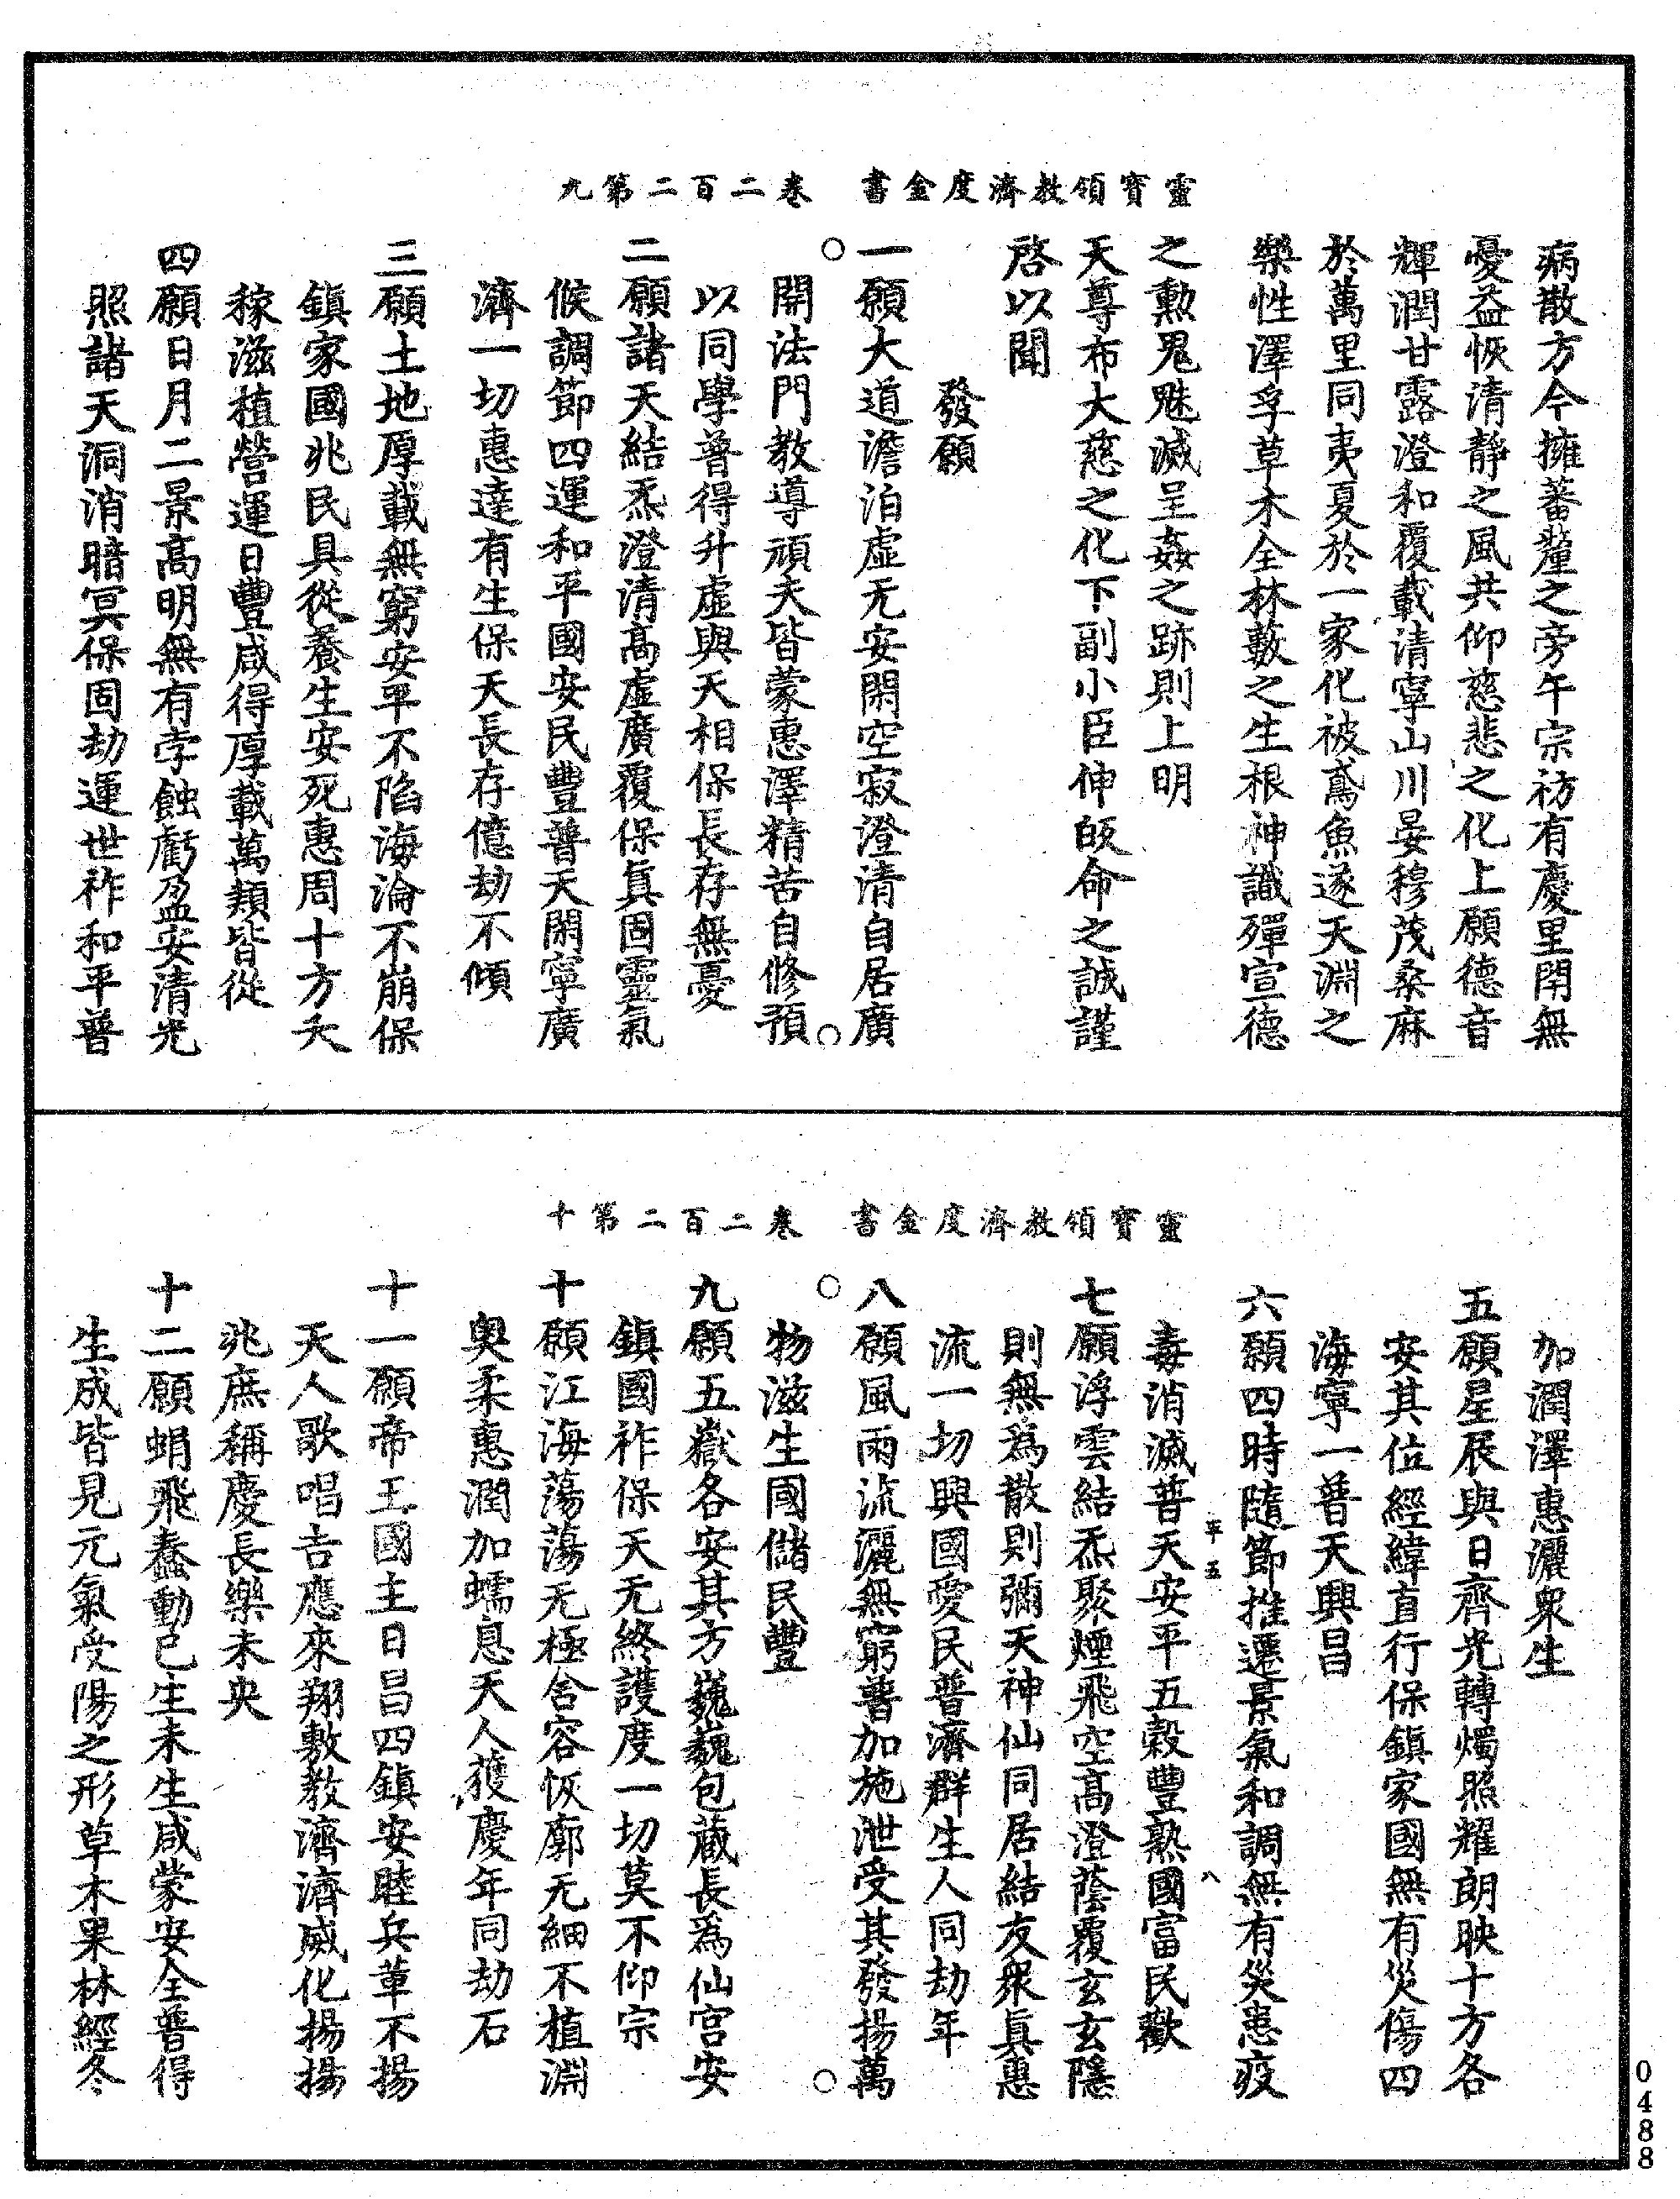 靈寶領教濟度金書　卷二百二第九
病散方今擁蕃釐之旁午宗祊有慶里閈無
憂益恢清靜之風共仰慈悲之化上願德音
輝潤甘露澄和覆載清寧山川晏穆茂桑麻
於萬里同夷夏於一家化被鳶魚遂天淵之
樂性澤孚草木全林藪之生根神識殫宣德
之勲鬼魅滅呈姦之跡則上明
天尊布大慈之化下副小臣伸皈命之誠謹
啓以聞
發願
一願大道澹泊虛无安閑空寂澄清自居廣
開法門教導頑夫皆蒙惠澤精苦自修預
以同學普得升虛與天相保長存無憂
二願諸天結炁澄清高虛廣覆保真固靈氣
候調節四運和平國安民豐普天閑寧廣
濟一切惠達有生保天長存億劫不傾
三願土地厚載無窮安平不陷海淪不崩保
鎮家國兆民具從養生安死惠周十方夭
稼滋植營運日豐咸得厚載萬類皆從
四願日月二景高明無有孛蝕虧盈安清光
照諸天洞消暗冥保固劫運世祚和平普
靈寶領教濟度金書　卷二百二第十
加潤澤惠灑衆生
五願星辰與日齊光轉燭照耀朗映十方各
安其位經緯直行保鎮家國無有災傷四
海寧一普天興昌
六願四時隨節推遷景氣和調無有災患疫
毒消滅普天安平五穀豐熟國富民歡
七願浮雲結炁聚煙飛空高澄蔭覆玄玄隱
則無為散則彌天神仙同居結友衆真惠
流一切興國愛民普濟群生人同劫年
八願風雨流灑無窮普加施泄受其發揚萬
物滋生國儲民豐
九願五嶽各安其方巍巍包藏長為仙宮安
鎮國祚保天无終護度一切莫不仰宗
十願江海蕩蕩无極含容恢廓无細不植淵
奧柔惠潤加蠕息天人獲慶年同劫石
十一願帝王國主日昌四鎮安睦兵革不揚
天人歌唱吉應來翔敷教濟濟威化揚揚
兆庶稱慶長樂未央
十二願蜎飛蠢動已生未生咸蒙安全普得
生成皆見元氣受陽之形草木果林經冬
0488